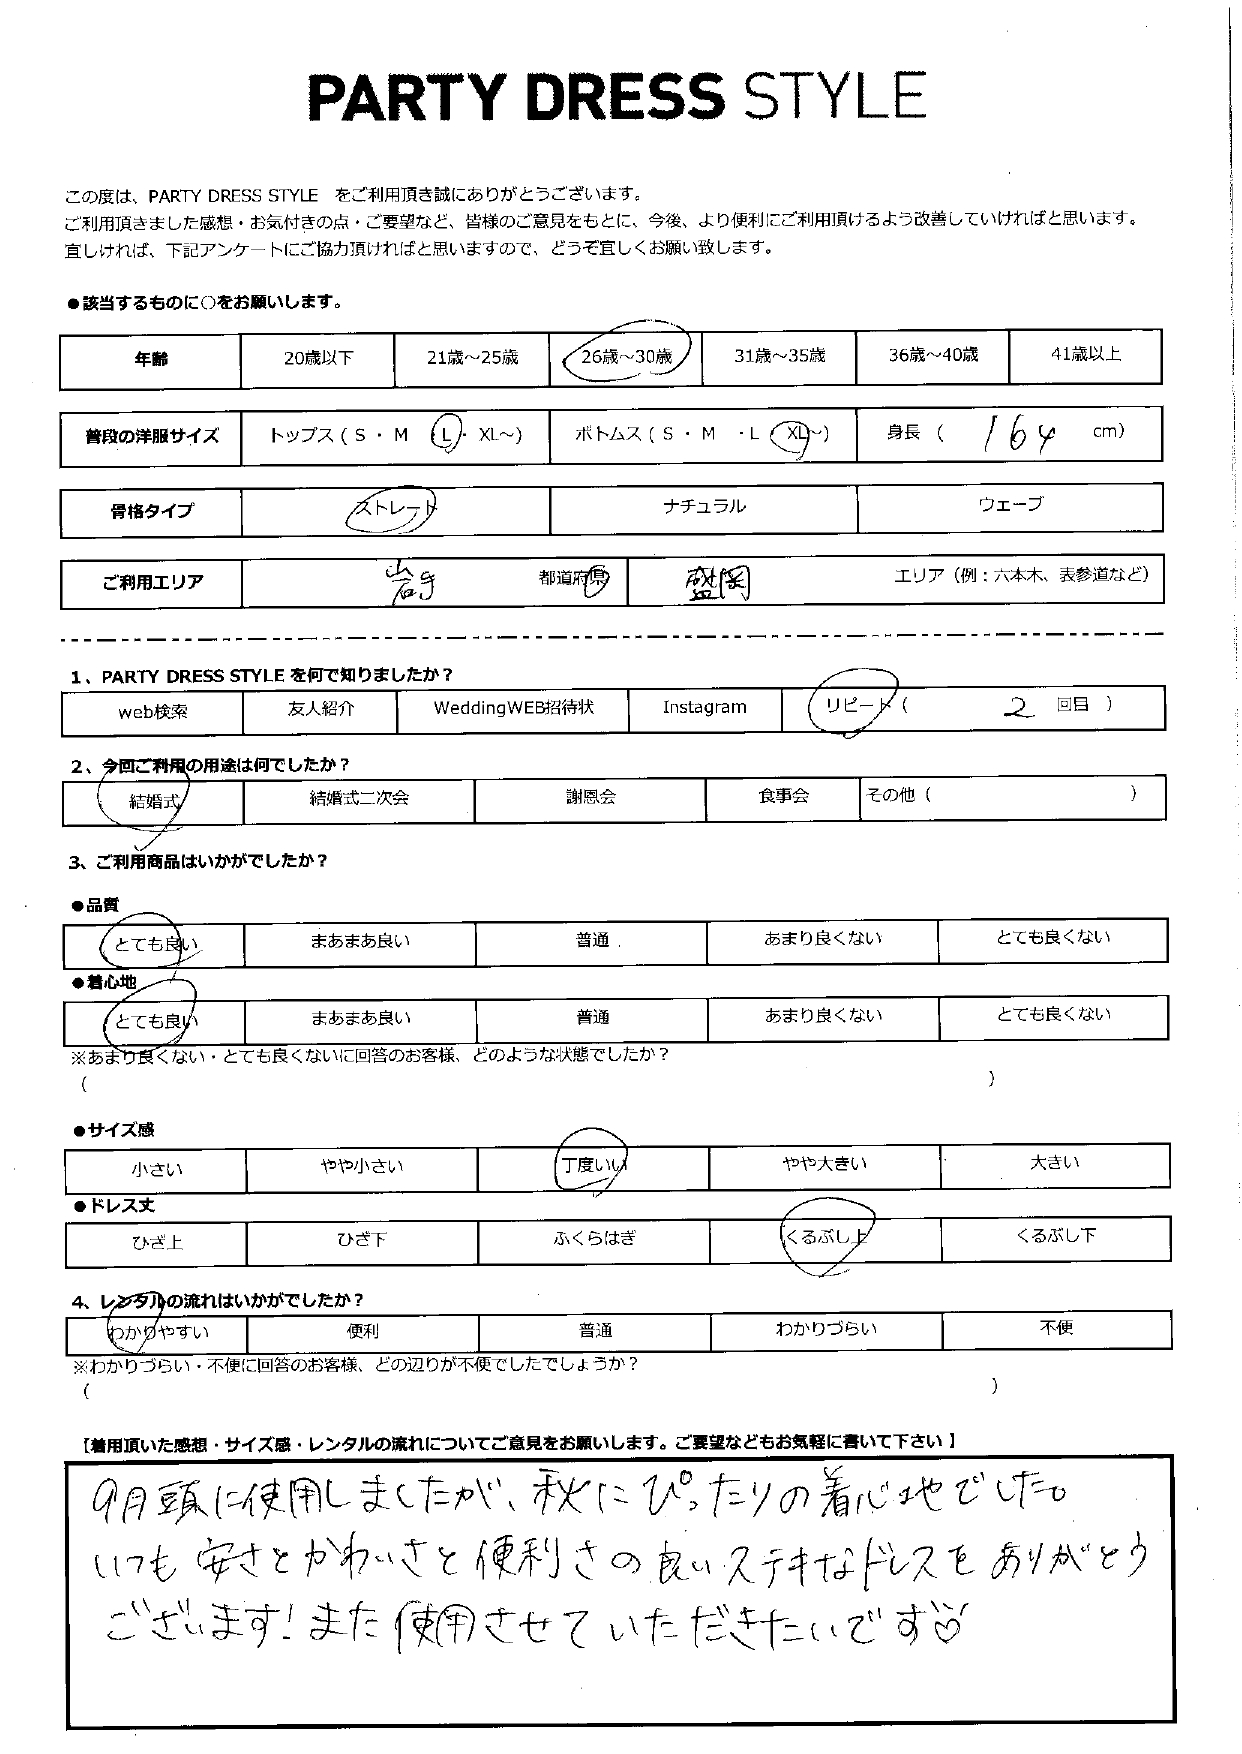 PARTY DRESS STYLE
この度は、PARTY DRESS STYLE をご利用頂き誠にありがとうございます。
ご利用頂きました感想・お気付きの点・ご要望など、皆様のご意見をもとに、今後、より便利にご利用頂けるよう改善していければと思います。
宜しければ、下記アンケートにご協力頂ければと思いますので、どうぞ宜しくお願い致します。
●該当するものに○をお願いします。
年齢 20歳以下 21歳～25歳 26歳～30歳 31歳～35歳 36歳～40歳 41歳以上
普段の洋服サイズ トップス ( S ・ M ・ L ・ XL～) ボトムス ( S ・ M ・ L ・ XL～) 身長 ( 164 cm)
骨格タイプ ストレート ナチュラル ウェーブ
ご利用エリア 岩手 都道府県 盛岡 エリア（例：六本木、表参道など）
1、PARTY DRESS STYLE を何で知りましたか？
web検索 友人紹介 WeddingWEB招待状 Instagram リピート ( 2 回目 )
2、今回ご利用の用途は何でしたか？
結婚式 結婚式二次会 謝恩会 食事会 その他 ( )
3、ご利用商品はいかがでしたか？
●品質
とても良い まあまあ良い 普通 あまり良くない とても良くない
●着心地
とても良い まあまあ良い 普通 あまり良くない とても良くない
※あまり良くない・とても良くないに回答のお客様、どのような状態でしたか？
( )
●サイズ感
小さい やや小さい 丁度いい やや大きい 大きい
●ドレス丈
ひざ上 ひざ下 ふくらはぎ くるぶし上 くるぶし下
4、レンタルの流れはいかがでしたか？
わかりやすい 便利 普通 わかりづらい 不便
※わかりづらい・不便に回答のお客様、どの辺りが不便でしたでしょうか？
( )
【着用頂いた感想・サイズ感・レンタルの流れについてご意見をお願いします。ご要望などもお気軽に書いて下さい】
9月頭に使用しましたが、秋にぴったりの着心地でした。
いつも安さとかわいさと便利さの良いステキなドレスをありがとう
ございます！また使用させていただきたいです♡